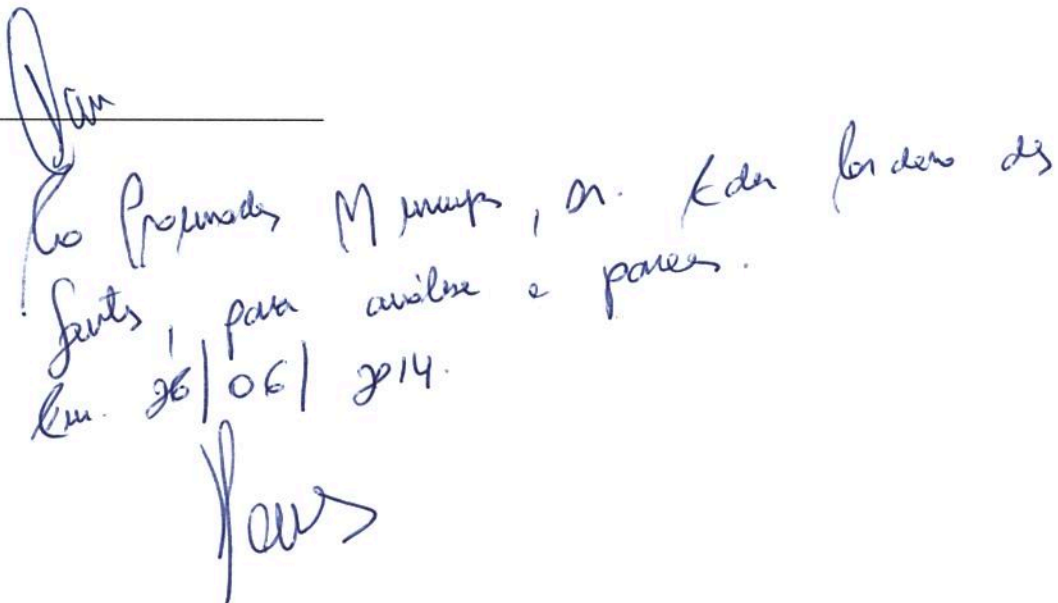 Ao Procurador Municipal, Dr. Eder Cordeiro dos
Santos, para análise e parecer.
Em. 26/06/2014.